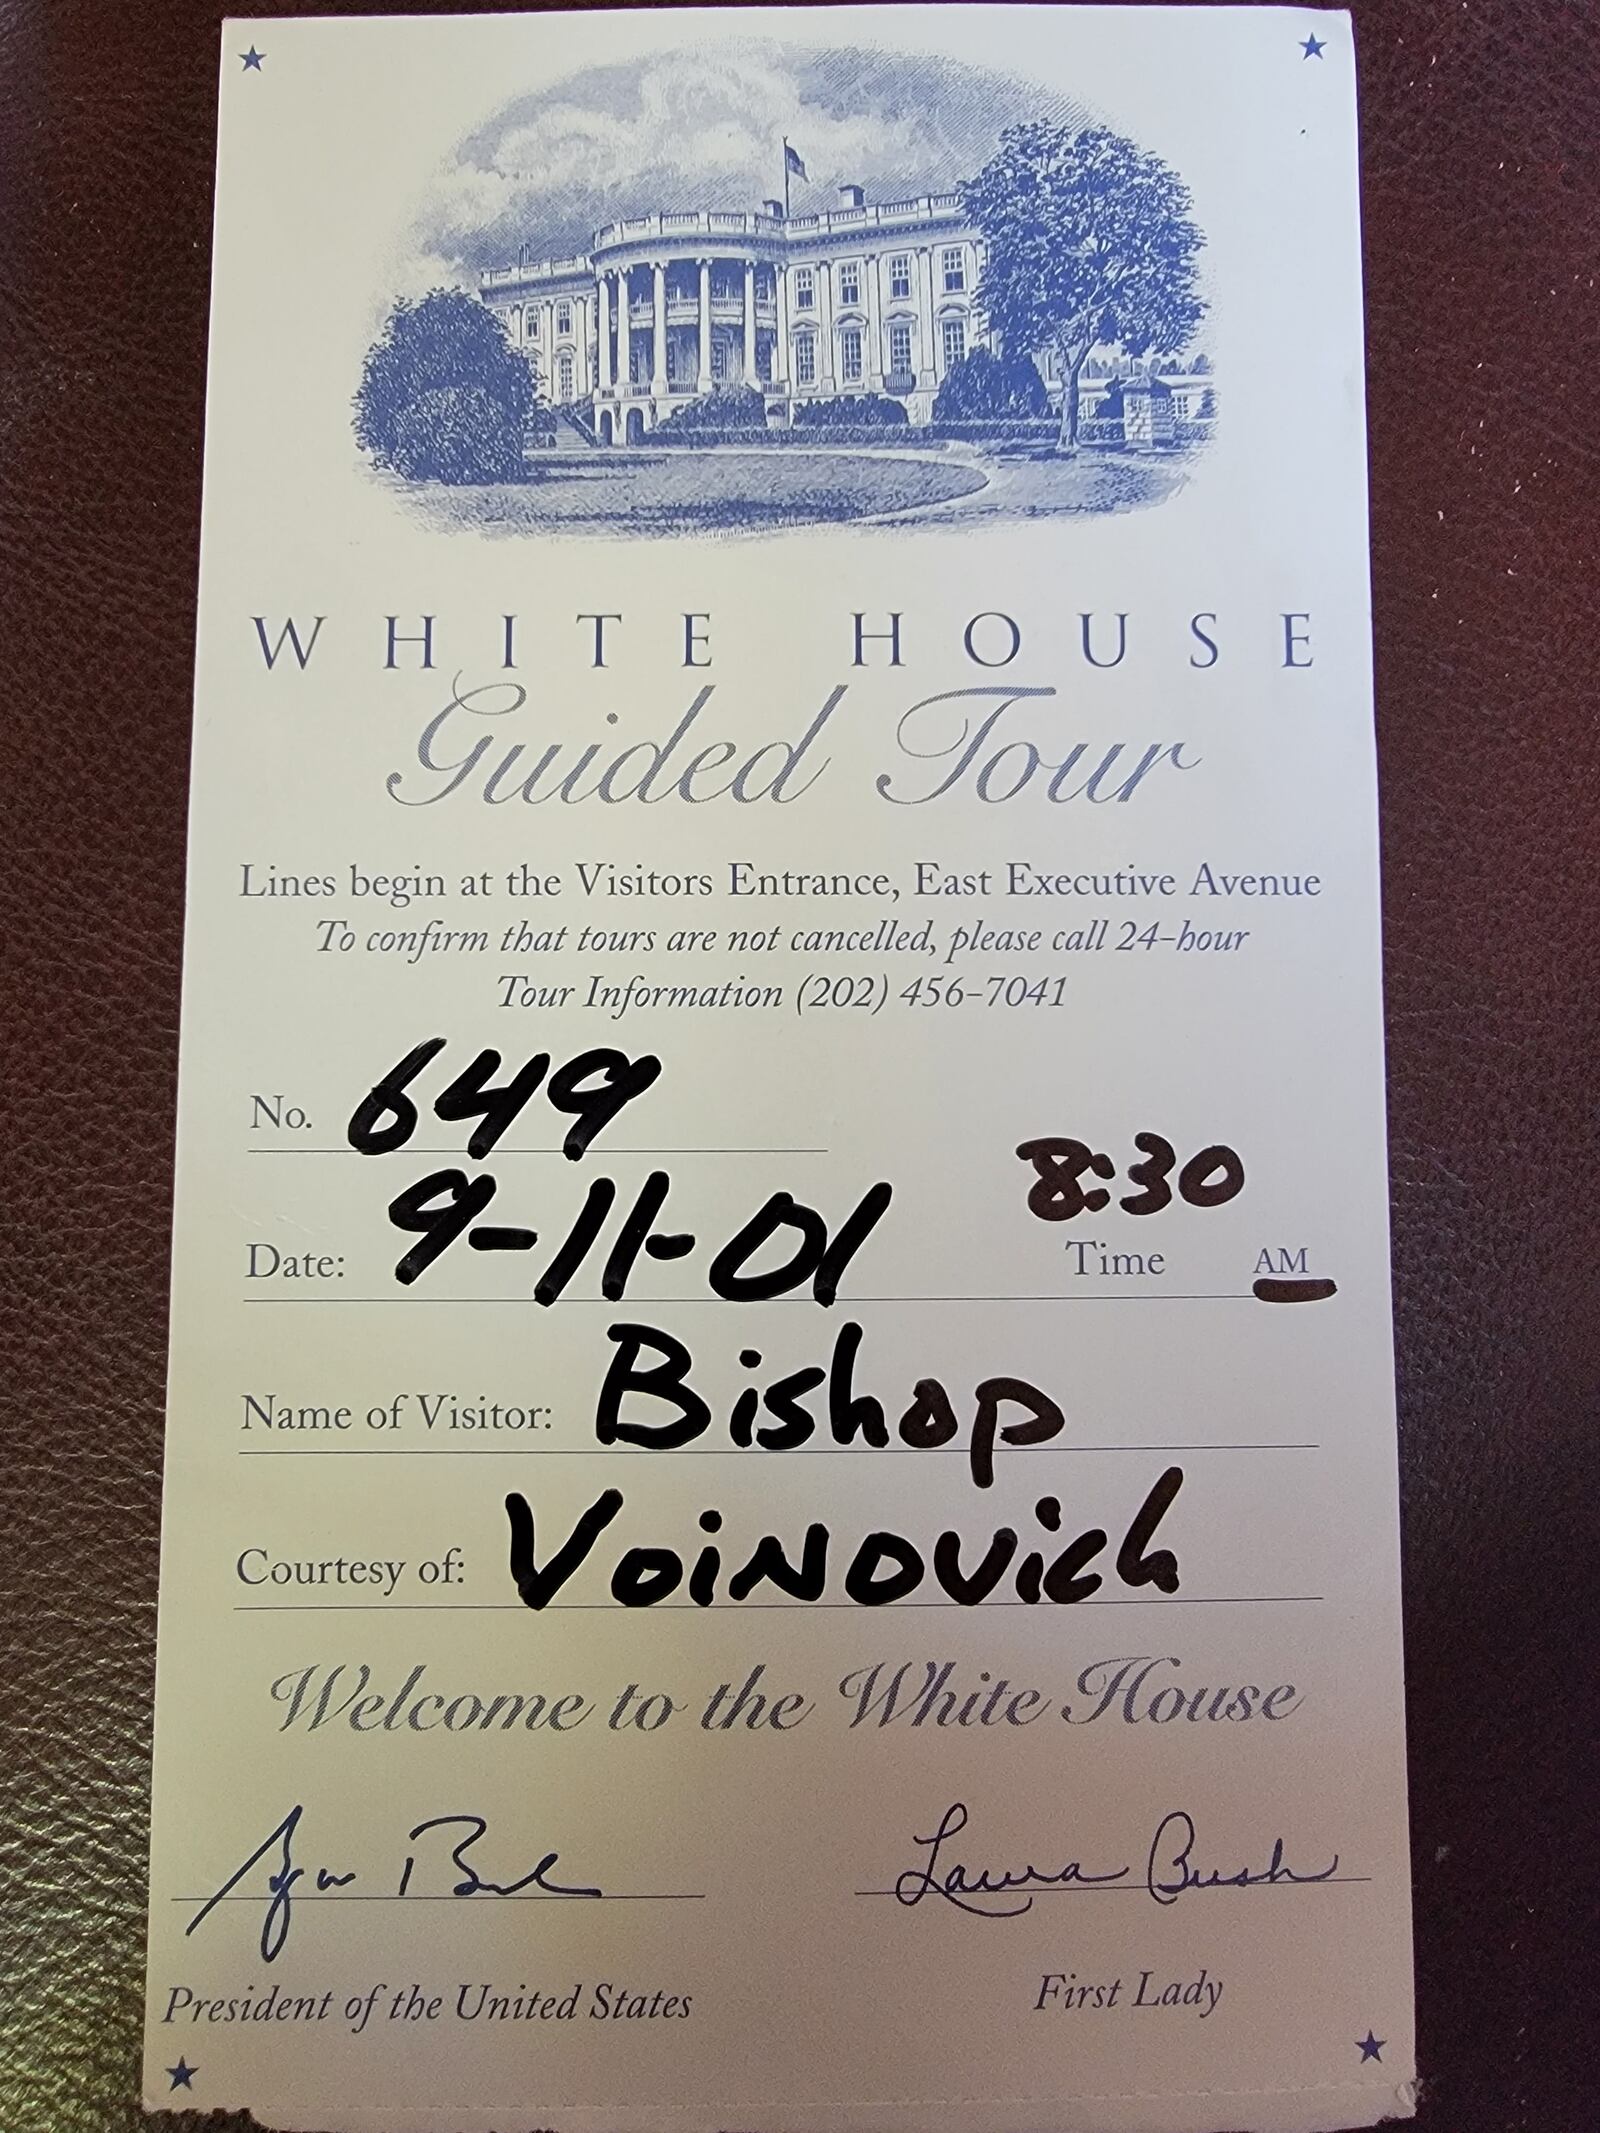 WHITE HOUSE
Guided Tour
Lines begin at the Visitors Entrance, East Executive Avenue
To confirm that tours are not cancelled, please call 24-hour
Tour Information (202) 456-7041
No. 649
8:30
Date: 9-11-01 Time AM
Name of Visitor: Bishop
Courtesy of: Voinovich
Welcome to the White House
George Bush Laura Bush
President of the United States First Lady